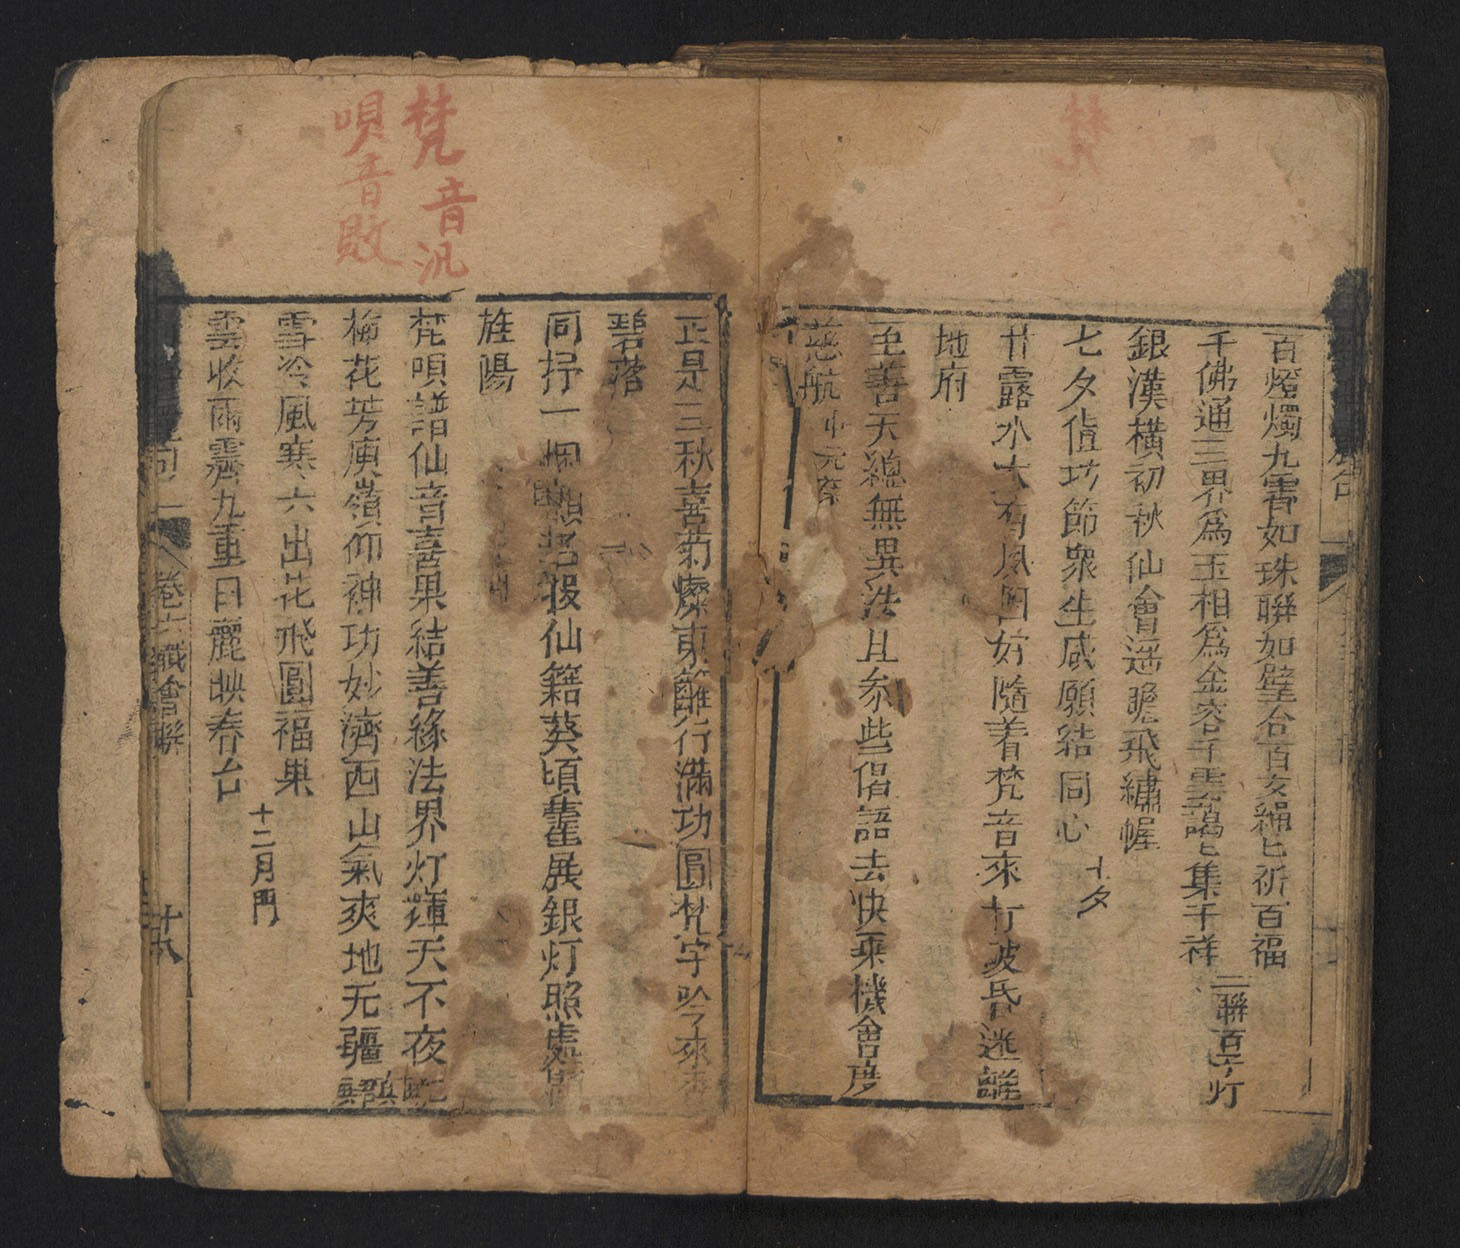 百燈燭九霄如珠聯如璧合百交繩匕祈百福
千佛通三界爲玉相爲金容千雲藹匕集千祥 二聯百子灯
銀漢橫初秋仙會遥瞻飛繡幄
七夕值功節衆生咸願結同心 七夕
甘露水大有風回好隨着梵音來打破昏迷誰
地府
至善天總無異法且參些偈語去快乘機會度
慈航 中元祭
正是三秋喜菊燦東籬行滿功圓梵字吟來
碧落
同抒一悃 仙籍葵頃舊展銀灯照處
旌陽
梵唄譜仙音喜果結善緣法界灯輝天不夜
梅花芳庾嶺仰神功妙濟西山氣爽地无疆
雪冷風寒六出花飛圓福果
雲收雨霽九重日麗映春台 十二月門
卷 讖會聯
梵音汎
唄音敗